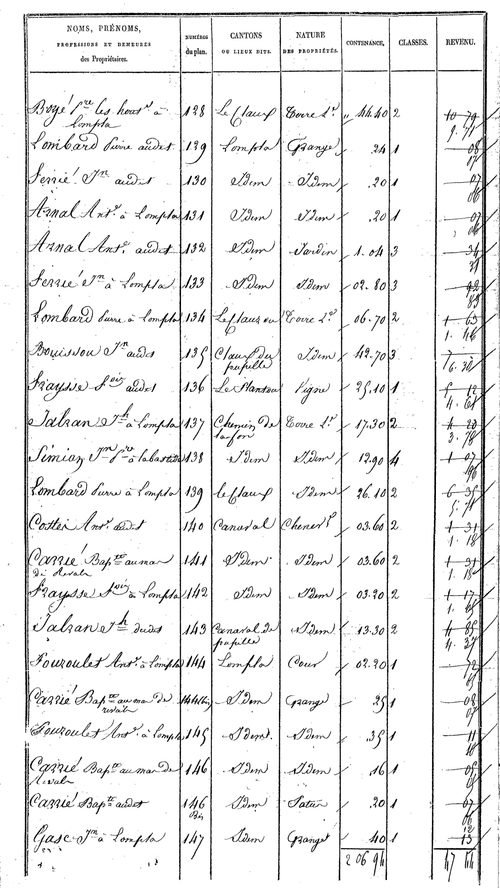 NOMS, PRÉNOMS, PROFESSIONS ET DEMEURES des Propriétaires. | NUMÉROS du plan. | CANTONS OU LIEUX DITS. | NATURE DES PROPRIÉTÉS. | CONTENANCE. | CLASSES. | REVENU.
Boyé les à Lompla 128 Le Claux Terre 44.40 2 10 79
9. 71
Lombard Pierre audit 129 Lompla Grange 24 1 08
07
Ferrié Jn audit 130 Idem Idem 20 1 07
06
Arnal Ant. à Lompla 131 Idem Idem 20 1 07
06
Arnal Ant. audit 132 Idem Jardin 1.04 3 34
31
Ferrié Jn à Lompla 133 Idem Idem 02.80 3 92
83
Lombard Pierre à Lompla 134 Le Claux ou Terre 06.70 2 1 63
1. 46
Bouissou Jn audit 135 Claux du Idem 42.70 3
6. 30
Fraysse audit 136 Le Vigne 25.10 1 5 12
4. 61
Jalran Jh à Lompla 137 Chemin de Terre 17.30 2 4 20
3. 78
Simian Jn à labastide 138 Idem Idem 12.90 4 1 07
96
Lombard Pierre à Lompla 139 Le Claux Idem 26.10 2 6 35
5. 71
Costes Ant. audit 140 Canaval Chenev. 03.60 2 1 31
1. 18
Carrié Bapte au mas de Revals 141 Idem Idem 03.60 2 1 31
1. 18
Fraysse à Lompla 142 Idem Idem 03.20 2 1 17
1. 05
Jalran Jh audit 143 Canaval de Idem 13.30 2 4 85
4. 37
Fouroulet Ant. à Lompla 144 Lompla Cour 02.20 1 72
65
Carrié Bapte au mas de revals 144 bis Idem Grange 25 1 08
07
Fouroulet Ant. à Lompla 145 Idem Idem 35 1 11
10
Carrié Bapte au mas de Revals 146 Idem Idem 16 1 05
Carrié Bapte audit 146 Bis Idem Patus 20 1 07
06
Gasc Jn à Lompla 147 Idem Grange 40 1 13
12
2 06 94 47 44